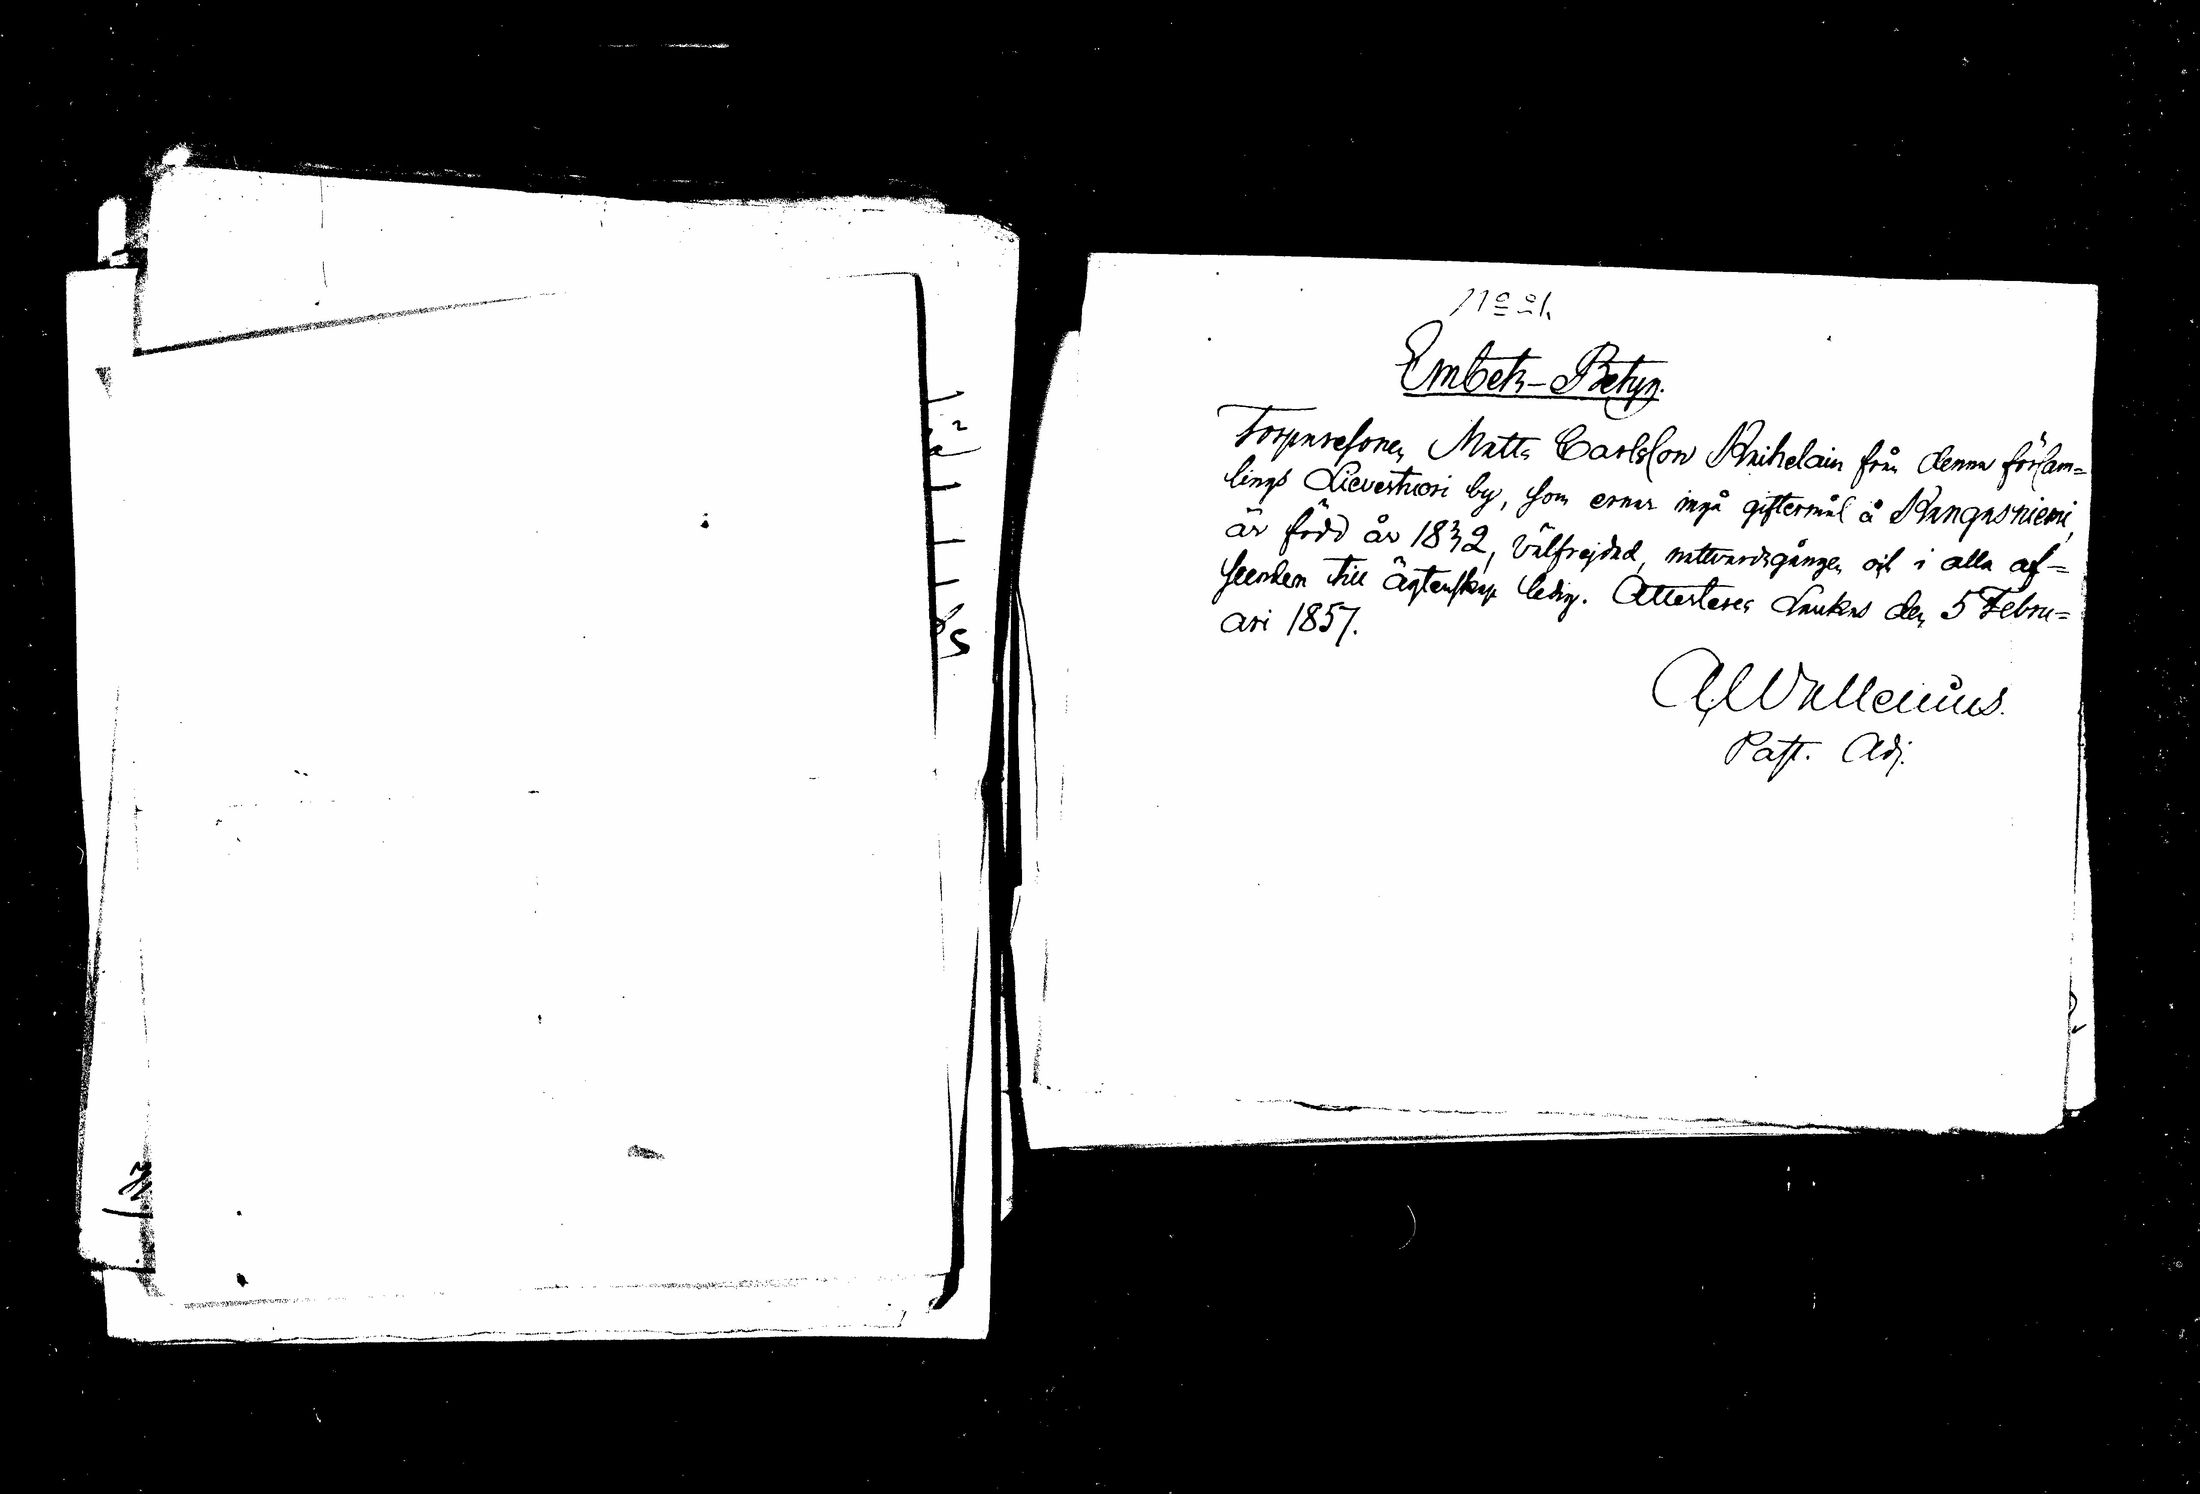 Embets-Betyg.
Torparesonen Matts Carlsson Raihelain från denna försam=
lings Lievestuori by, som ernar ingå giftermål å Kangasniemi,
är född år 1832, välfrejdad, nattvardsgången och i alla af=
seenden till ägtenskap ledig. Attesteras Laukas den 5 Febru=
ari 1857.
Wallenius.
Past. Adj.